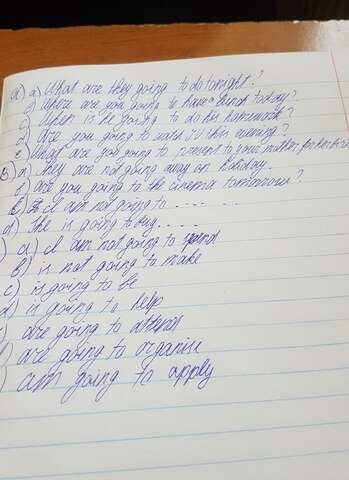 A) a) What are they going to do tonight?
b) Where are you going to have a lunch today?
c) When is he going to do his homework?
d) Are you going to watch TV this evening?
e) What are you going to present to your mother for her birth
B) a) They are not going away on holiday.
b) are you going to the cinema tomorrow?
c) I am not going to . . . . . .
d) She is going to buy . . . . .
) a) I am not going to spend
b) is not going to make
c) is going to be
d) is going to help
) are going to attend
) are going to organise
) am going to apply